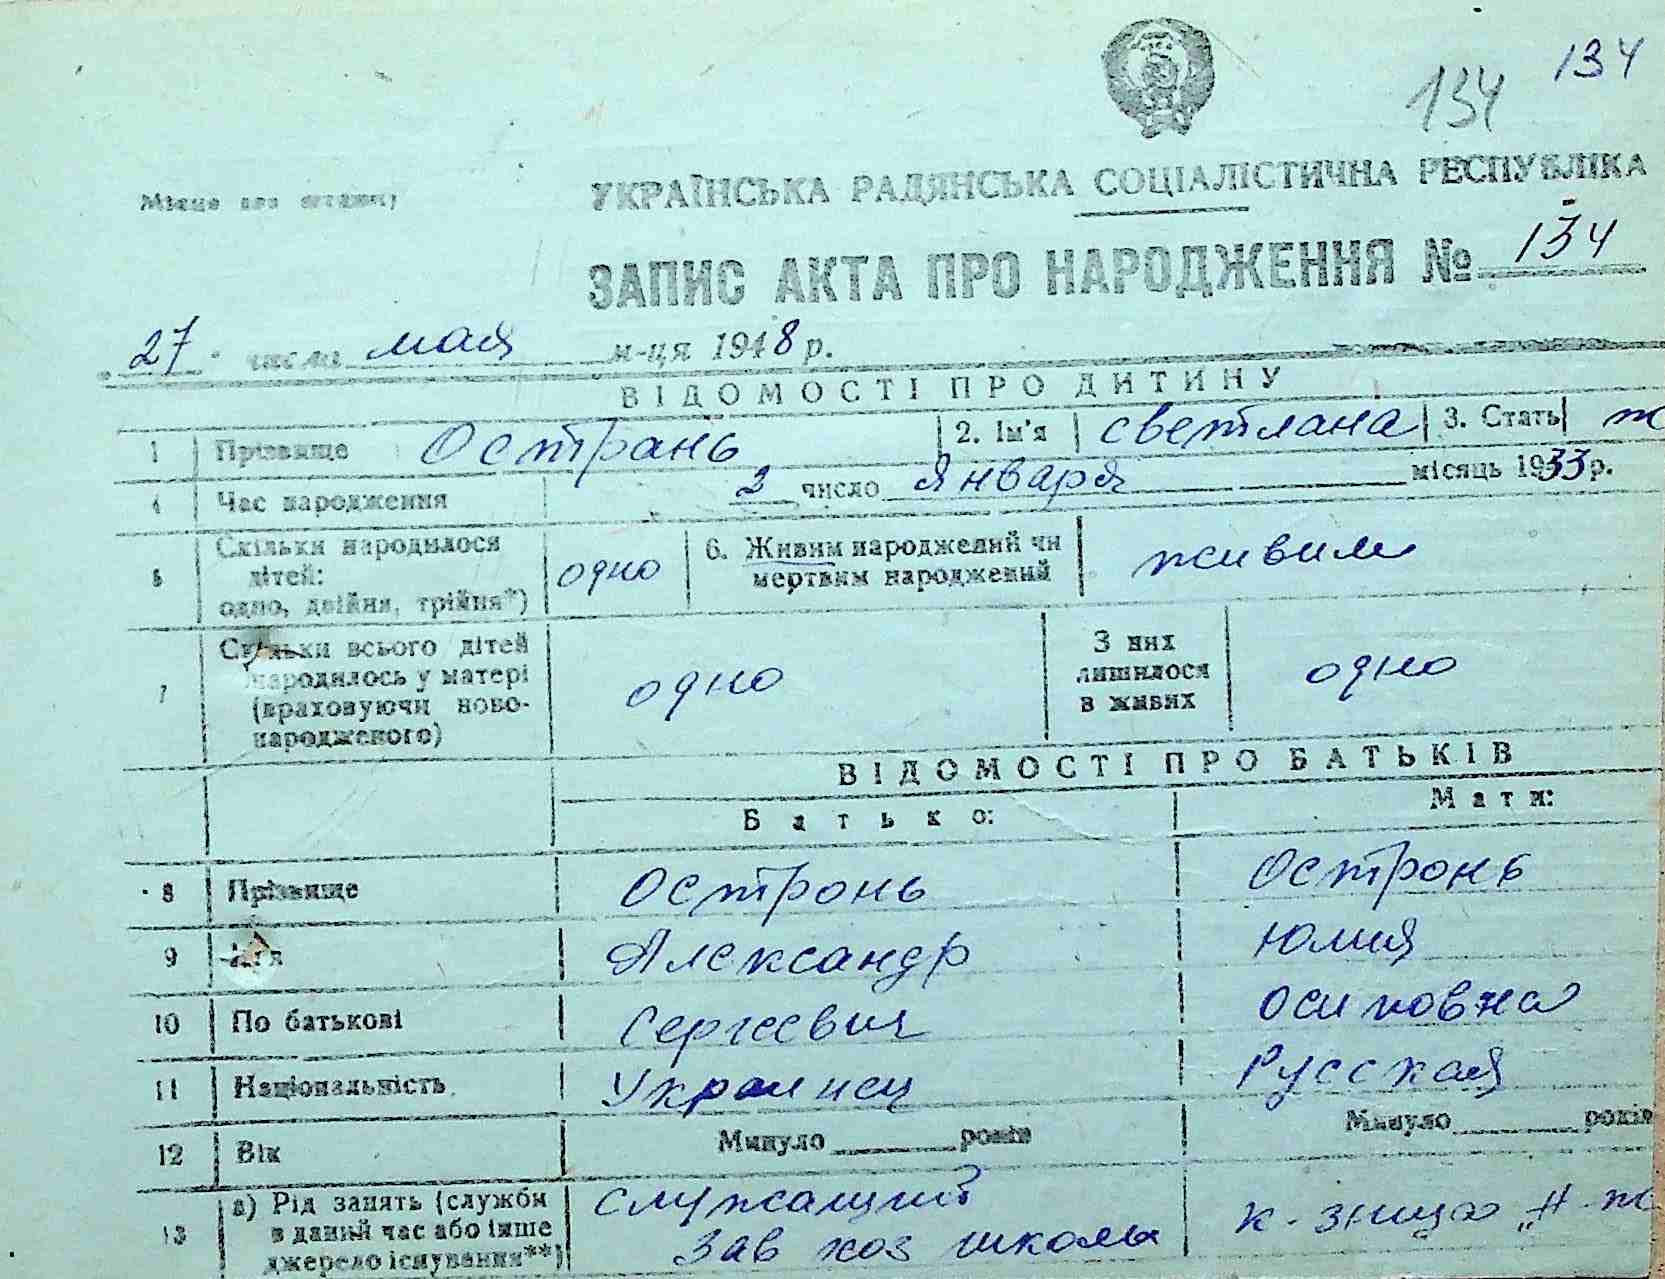 134 134
Місце для штампу
УКРАЇНСЬКА РАДЯНСЬКА СОЦІАЛІСТИЧНА РЕСПУБЛІКА
ЗАПИС АКТА ПРО НАРОДЖЕННЯ № 134
27 числа мая м-ця 1948 р.
ВІДОМОСТІ ПРО ДИТИНУ
1 Прізвище Острань 2. Ім'я Светлана 3. Стать ж
4 Час народження 2 число Января місяць 1933 р.
5 Скільки народилося дітей: одно, двійня, трійня*) одно 6. Живим народжений чи мертвим народжений живим
7 Скільки всього дітей народилось у матері (враховуючи новонародженого) одно З них лишилося в живих одно
ВІДОМОСТІ ПРО БАТЬКІВ
Батько: Мати:
8 Прізвище Остронь Остронь
9 Ім'я Александр Юлия
10 По батькові Сергеевич Осиповна
11 Національність Украинец Русская
12 Вік Минуло років Минуло років
13 а) Рід занять (служби в даный час або інше джерело існування**) служащий зав хоз школы